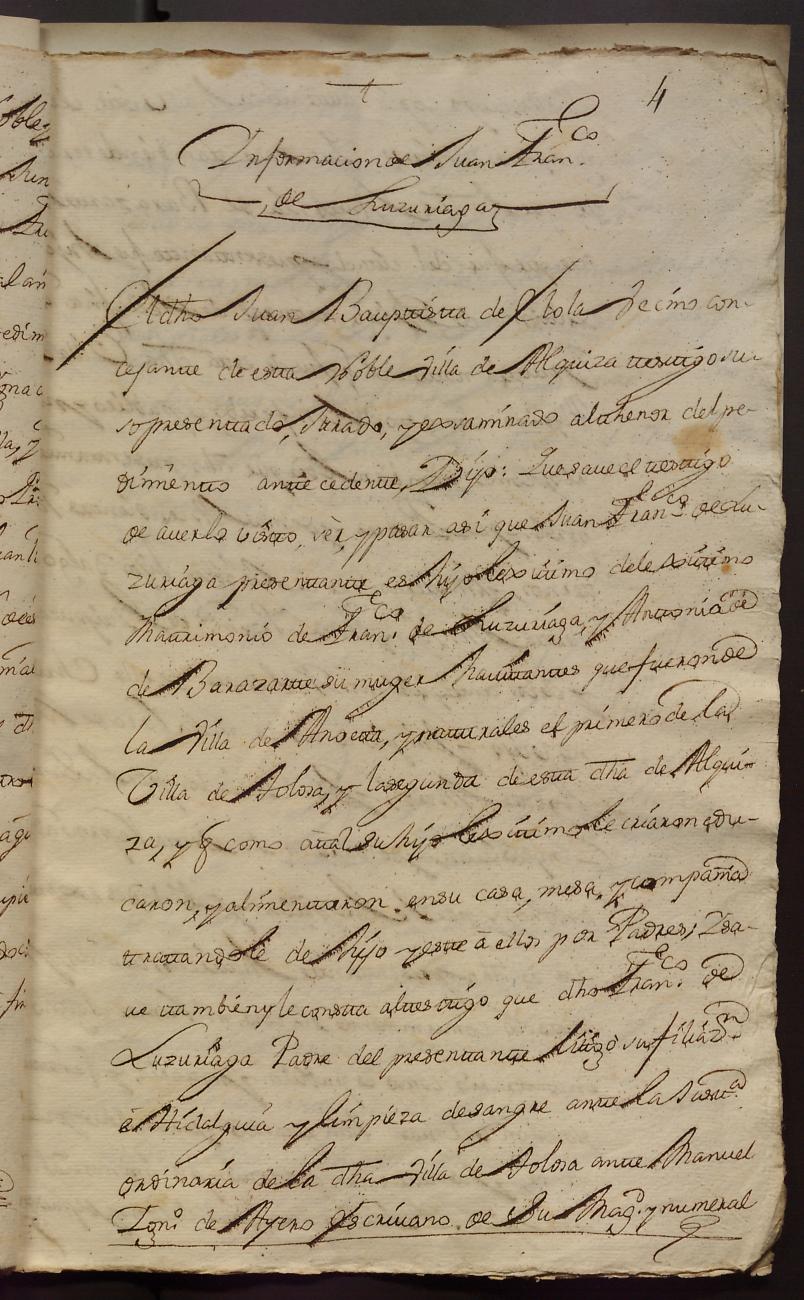 4
Informacion de Juan Fran.co
de Luzuriaga
El dho Juan Bauptista de Elola Vecino con-
cejante de esta Noble Villa de Alquiza testigo su-
so presentado, Jurado, y exsaminado al thenor del pe-
dimento antecedente, Dijo: Que save el testigo
de averlo visto, ver, y pasar asi que Juan Fran.co de Lu-
zuriaga presentante es hijo lexitimo de lexitimo
Matrimonio de Fran.co de Luzuriaga, y Antonia de
de Barazarte su muger havitantes que fueron de
la Villa de Anoeta, y naturales el primero de la
Villa de Tolosa, y la segunda de esta dha de Alqui-
za, y q como a tal su hijo lexitimo le criaron, edu-
caron, y alimentaron en su casa, mesa, y compañia
tratandole de hijo y este à ellos por Padres; Y sa-
ve tambien y le consta al testigo que dho Fran.co de
Luzuriaga Padre del presentante litigò su filiaz.n
è Hidalguia y limpieza de sangre ante la Just.a
ordinaria de la dha Villa de Tolosa ante Manuel
Ign.o de Ayero Escrivano de Su Mag.d y numeral